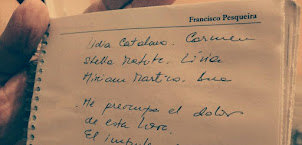 Francisco Pesqueira
Idia Catalano. Carmen
Stella Matute. Livia
Miriam Martiro. Ana
Me preocupa el dolor
de esta hora.
El